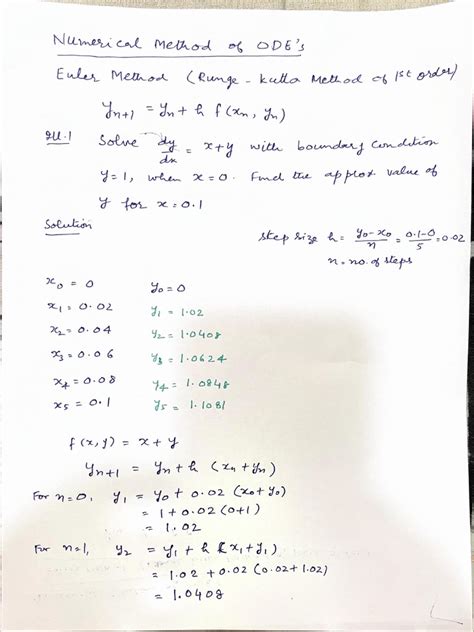 Numerical Method of ODE's
Euler Method (Runge-Kutta Method of 1st order)
yn+1 = yn + h f(xn, yn)
Ill.1 Solve dy/dx = x+y with boundary condition
y=1, when x=0. Find the approx value of
y for x=0.1
Solution
step size h = y0-x0/n = 0.1-0/5 = 0.02
n=no. of steps
x0 = 0 y0=0
x1 = 0.02 y1 = 1.02
x2 = 0.04 y2 = 1.0408
x3 = 0.06 y3 = 1.0624
x4 = 0.08 y4 = 1.0848
x5 = 0.1 y5 = 1.1081
f(x,y) = x+y
yn+1 = yn+h (xn+yn)
For n=0, y1 = y0+0.02 (x0+y0)
= 1+0.02 (0+1)
= 1.02
For n=1, y2 = y1+h (x1+y1)
= 1.02+0.02 (0.02+1.02)
= 1.0408